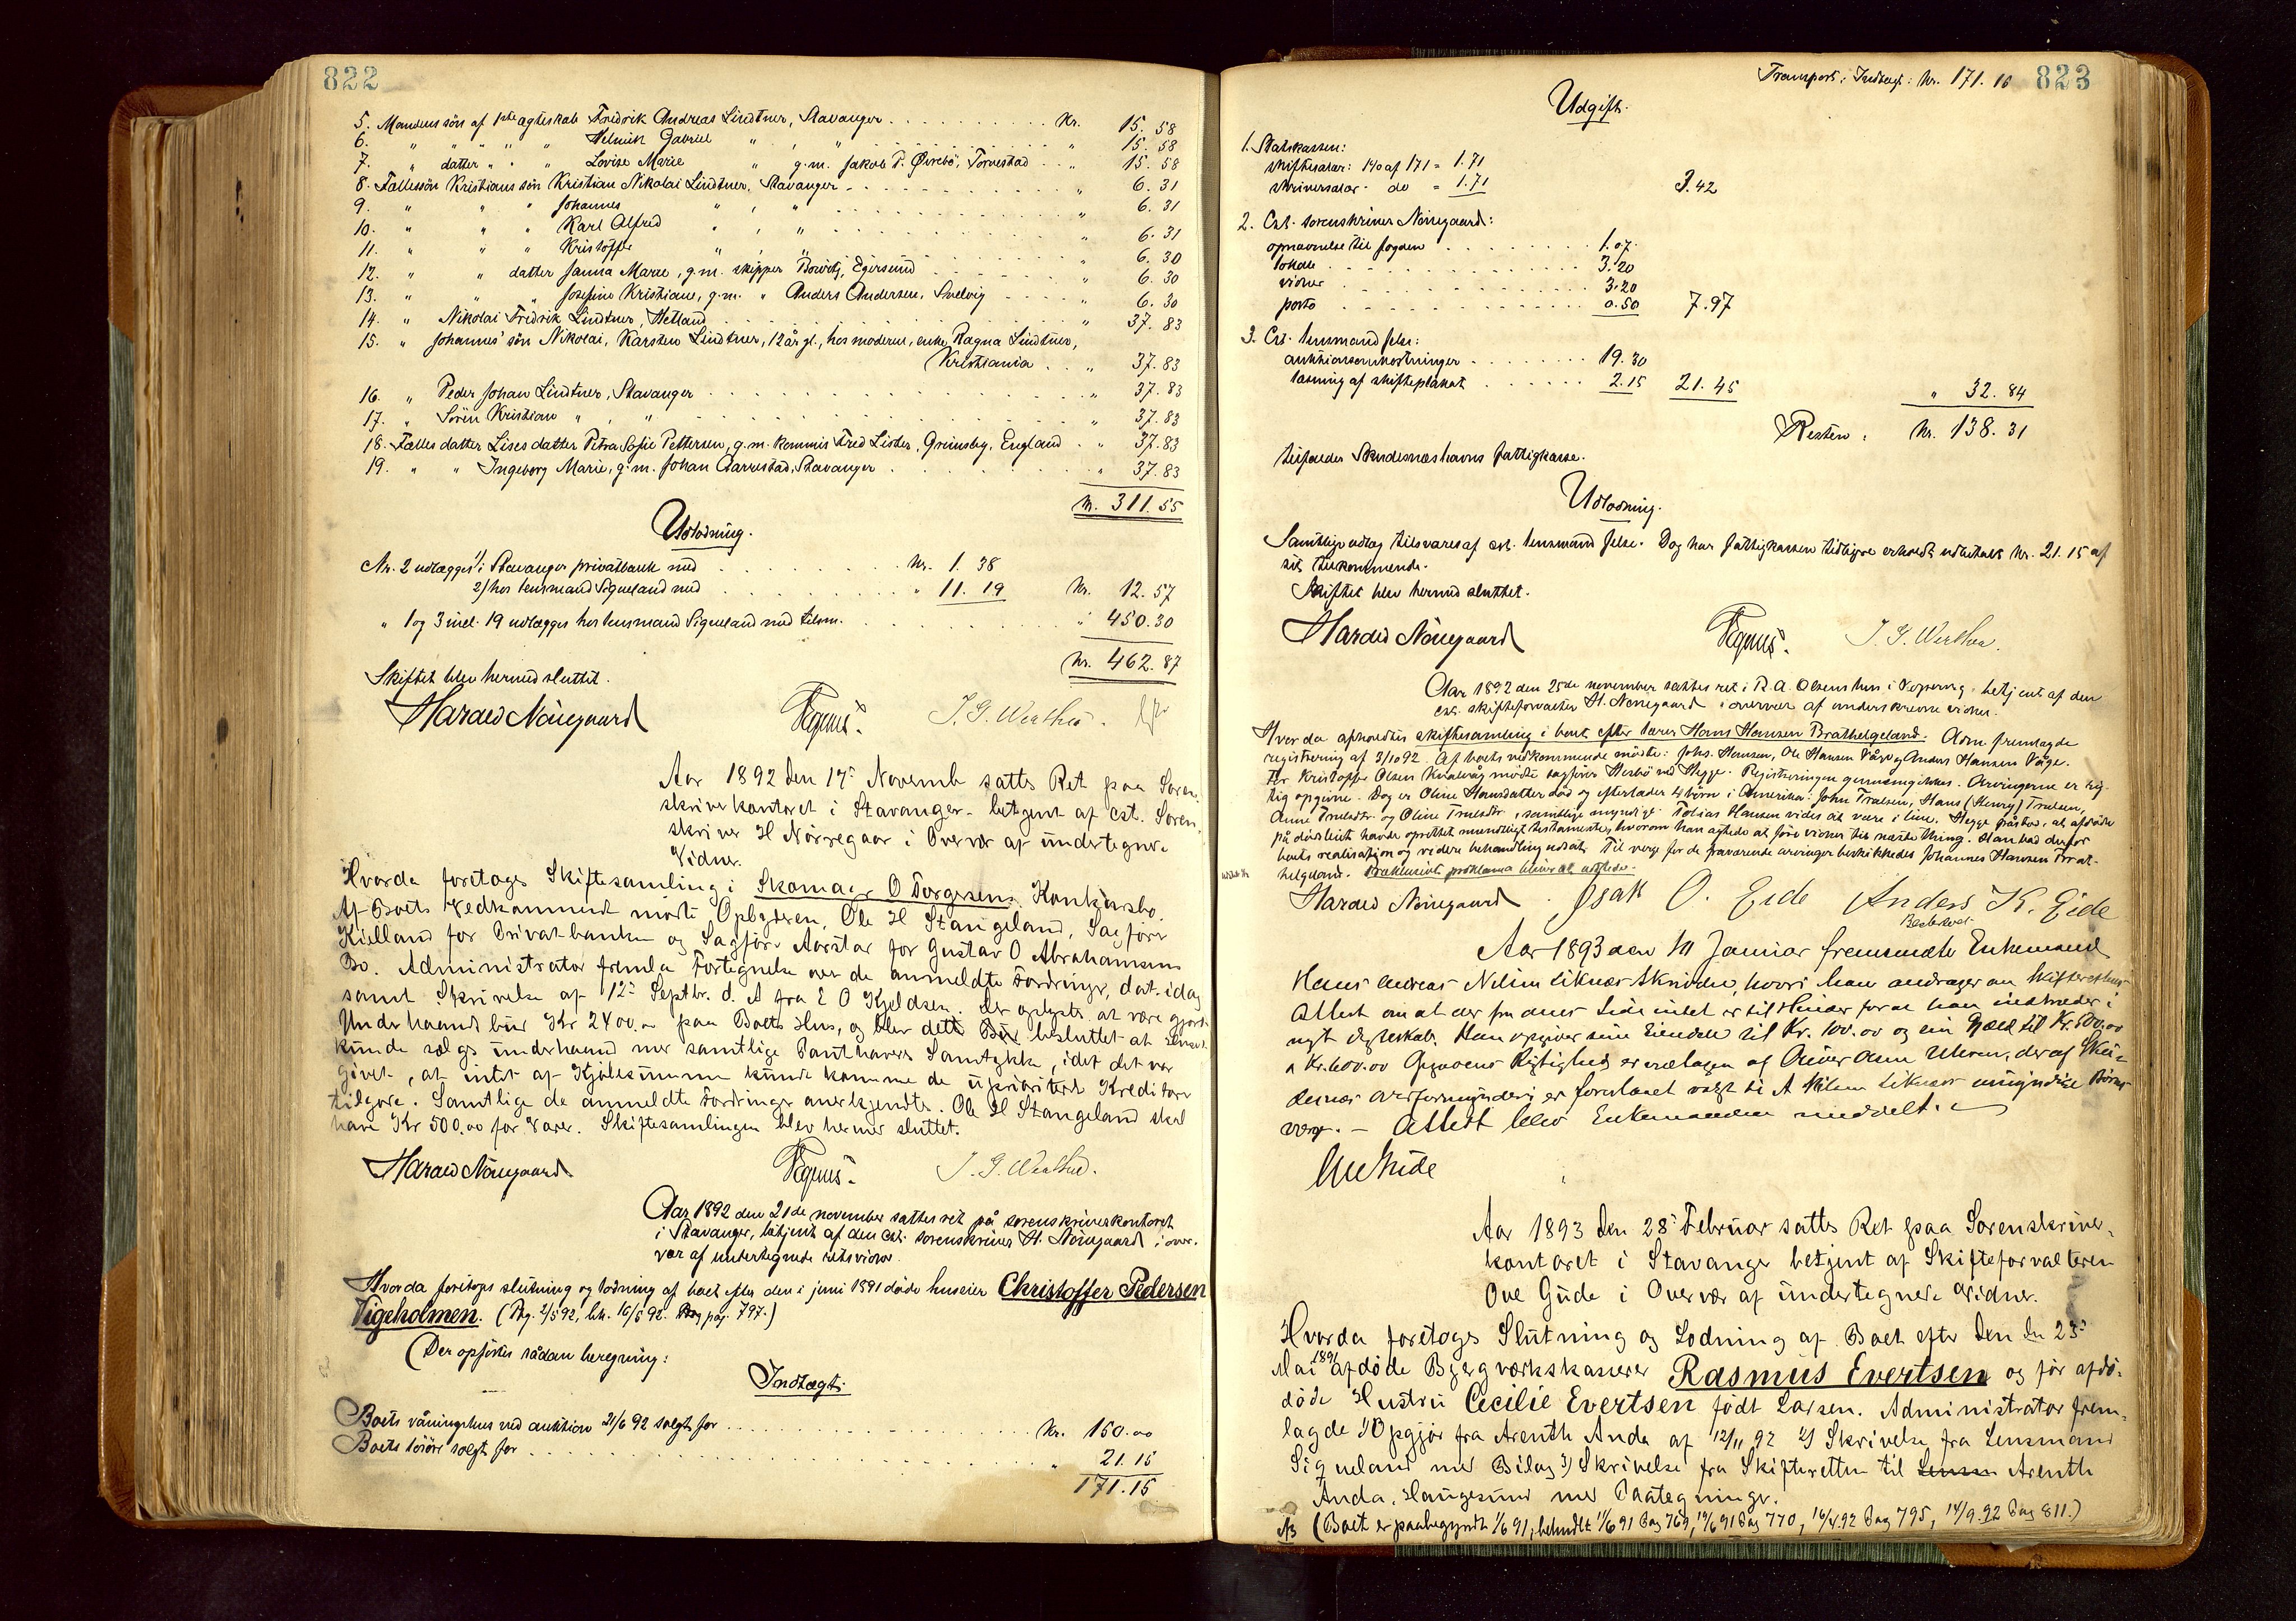 822
5. Mandens søn af 1ste ægteskab Fredrik Andreas Lindtner, Stavanger . . . . . . . . . . Kr. 15. 58
6. " " " " " Helmik Gabriel " , " . . . . . . . . " 15. 58
7. " datter " " " Lovise Marie " g.m. Jakob P. Øvrebö, Torvestad . . " 15. 58
8. Fællessön Kristians sön Kristian Nikolai Lindtner, Stavanger . . . . . . . . . . " 6. 31
9. " " " Johannes " , " . . . . . . . . " 6. 31
10. " " " Karl Alfred " , " . . . . . . . . " 6. 31
11. " " " Kristoffer " , " . . . . . . . . " 6. 30
12. " " datter Janna Marie, g.m. skipper Bowitz, Egersund . . . . . . " 6. 30
13. " " " Josefine Kristiane, g.m. " Anders Andersen, Svelvig . . . . " 6. 30
14. " Nikolai Fredrik Lindtner, Hetland . . . . . . . . . . " 37. 83
15. " Johannes' sön Nikolai, Karsten Lindtner, 12 år gl., hos moderen, enke Ragna Lindtner,
Kristiania . . " 37. 83
16. " Peder Johan Lindtner, Stavanger . . . . . . . . . . " 37. 83
17. " Sören Kristian " , " . . . . . . . . . . " 37. 83
18. Fælles datter Lises datter Petra Sofie Pettersen, g.m. kommis Fred Lister, Grimsby, England . " 37. 83
19. " " Ingeborg Marie, g.m. Johan Aarrestad, Stavanger . . . . . . " 37. 83
Kr. 311. 55
Udlodning.
Nr. 2 udlægges 1/ i Stavanger privatbank med . . . . . . . Kr. 1. 38
2/ hos lensmand Sigveland med . . . . . . . " 11. 19 Kr. 12. 57
" 1 og 3 incl. 19 udlægges hos lensmand Sigveland med tilsm. . . . . . . . " 450. 30
Kr. 462. 87
Skiftet blev hermed sluttet.
Harald Nörregaard J. G. Werthes.
Aar 1892 den 17de Novemb sattes Ret paa Soren-
skriverkontoret i Stavanger betjent af cst. Soren-
skriver H Nörregaar i Overvær af undertegnede
Vidner.
Hvorda foretoges Skiftesamling i Skomager O Torgersens Konkursbo.
Af Boets Vedkommende mödte Opbyderen, Ole H Stangeland, Sagförer
Kielland for Privatbanken og Sagför. Aarstad for Gustav O Abrahamsens
Bo. Administrator fremla Fortegnelse over de anmeldte Fordringer, dat. idag
samt Skrivelse af 12te Septbr. d. A fra E O Kjeldsen. Der oplystes at være gjort
Underhaandsbud Kr 2400.00 paa Boets Hus, og blev dette Bud besluttet at Huset
kunde sælges underhaand med samtlige Panthaveres Samtykke, idet det var
givet, at intet af Kjöbesummen kunde komme de uprioriterte Kreditorer
tilgode. Samtlige de anmeldte Fordringer anerkjendtes. Ole H Stangeland skal
have Kr 500.00 for Varer. Skiftesamlingen blev hermed sluttet.
Harald Nörregaard J. G. Werthes.
Aar 1892 den 21de november sattes ret på sorenskriverkontoret
i Stavanger, betjent af den cst. sorenskriver H. Nörregaard i over-
vær af undertegnede retsvidner.
Hvorda foretoges slutning og lodning af boet efter den i juni 1891 döde huseier Christoffer Pedersen
Vigeholmen. (Reg. 2/5 92, beh. 16/6 92. pag. 797.)
(Der opförtes sådan beregning:
Indtægt:
Boets våningshus ved auktion 21/6 92 solgt for . . . . . . . . . . Kr. 150.00
Boets lösöre solgt for . . . . . . . . . . " 21. 15
171. 15
823
Transport: Indtægt: Kr. 171. 15
Udgift.
1. Statskassen:
skiftesalær: 1% af 171 = 1.71
skriversalær. do = 1.71 3.42
2. Cst. sorenskriver Nörregaard:
opnævnelse til fogden . . . . . . . 1.07.
lokale . . . . . . . . 3.20
vidner . . . . . . . . 3.20
porto . . . . . . . . 0.50 7.97
3. Cst. lensmand Jelse:
auktionsomkostninger . . . . . . . 19. 30
læsning af skifteplakat . . . . . . 2.15 21. 45 " 32. 84
Resten: Kr. 138. 31
tilfalder Skudesneshavns fattigkasse.
Udlodning.
Samtlige udlæg tilsvares af cst. lensmand Jelse. Dog har fattigkassen tidligere erholdt udbetalt Kr. 21. 15 af
sit tilkommende.
Skiftet blev hermed sluttet.
Harald Nörregaard J. G. Werthes.
Aar 1892 den 25de november sattes ret i R. A. Olsens hus i Kopervig betjent af den
cst. skifteforvalter H. Nörregaard i overvær af underskrevne vidner.
Hvorda afholdtes skiftesamling i boet efter lærer Hans Hansen Brathelgeland. Adm fremlagde
registrering af 3/10 92. Af boets vedkommende mödte: Johs. Hansen, Ole Hansen Våge og Anders Hansen Våge.
For Kristoffer Olsen Kvalevåg mödte sagförer Herbö ved Hegge. Registreringen gjennemgikkes. Arvingerne er rig-
tig opgivne. Dog er Oline Hansdatter död og efterlader 4 börn i Amerika: John Truelsen, Hans (Henry) Truelsen,
Anne Truelsdtr. og Oline Truelsdtr, samtlige myndige. Tobias Hansen vides ei at være i live. Hegge påstod, at afdöde
på dödsleiet havde oprettet mundtligt testamente, hvorom han agtede at före vidner til næste thing. Han bad derfor
boets realisation og videre behandling udsat. Til værge for de fraværende arvinger beskikkedes Johannes Hansen Brat-
helgeland. Præklusivt proklama bliver at udstede.
Harald Nörregaard. Isak O. Eide Anders K. Eide
Aar 1893 den 10 Januar fremmødte Enkemand
Hans Andreas Nilsen Liknæs Skudne, hvori han andrager om Skifterettens
Attest om at der fra dens Side intet er til Hinder for at han indtræder i
nyt Ægteskab. Han opgiver sine Eiendele til Kr. 100.00 og sin Gjæld til Kr. 500.00
Kr. 600.00 Opgavens Rigtighed er vedtagen af der af Sku-
desnæs overformynderi er foreslaaet valgt til A Nilsen Liknæs umyndige Börns
værge. – Attest blev Enkemanden meddelt.
Ove Gude
Aar 1893 den 28de Februar sattes Ret paa Sorenskriver-
kontoret i Stavanger betjent af Skifteforvalteren
Ove Gude i Overvær af undertegnede Vidner.
Hvorda foretoges Slutning og Lodning af Boet efter den den 23de
Mai 1891 afdöde Bjergværkskasserer Rasmus Evertsen og för afdö-
döde Hustru Cecilie Evertsen födt Larsen. Administrator frem-
lagde 1) Opgjör fra Arenth Anda af 12/11 92 2) Skrivelse fra Lensmand
Sigveland med Bilag 3) Skrivelse fra Skifteretten til Lensm Arenth
Anda, Haugesund med Paategninger.
NB (Boet er paabegyndt 1/6 91, behandlt 11/6 91 Pag 769, 19/6 91 Pag 770, 16/4 92 Pag 795, 14/9 92 Pag 811.)